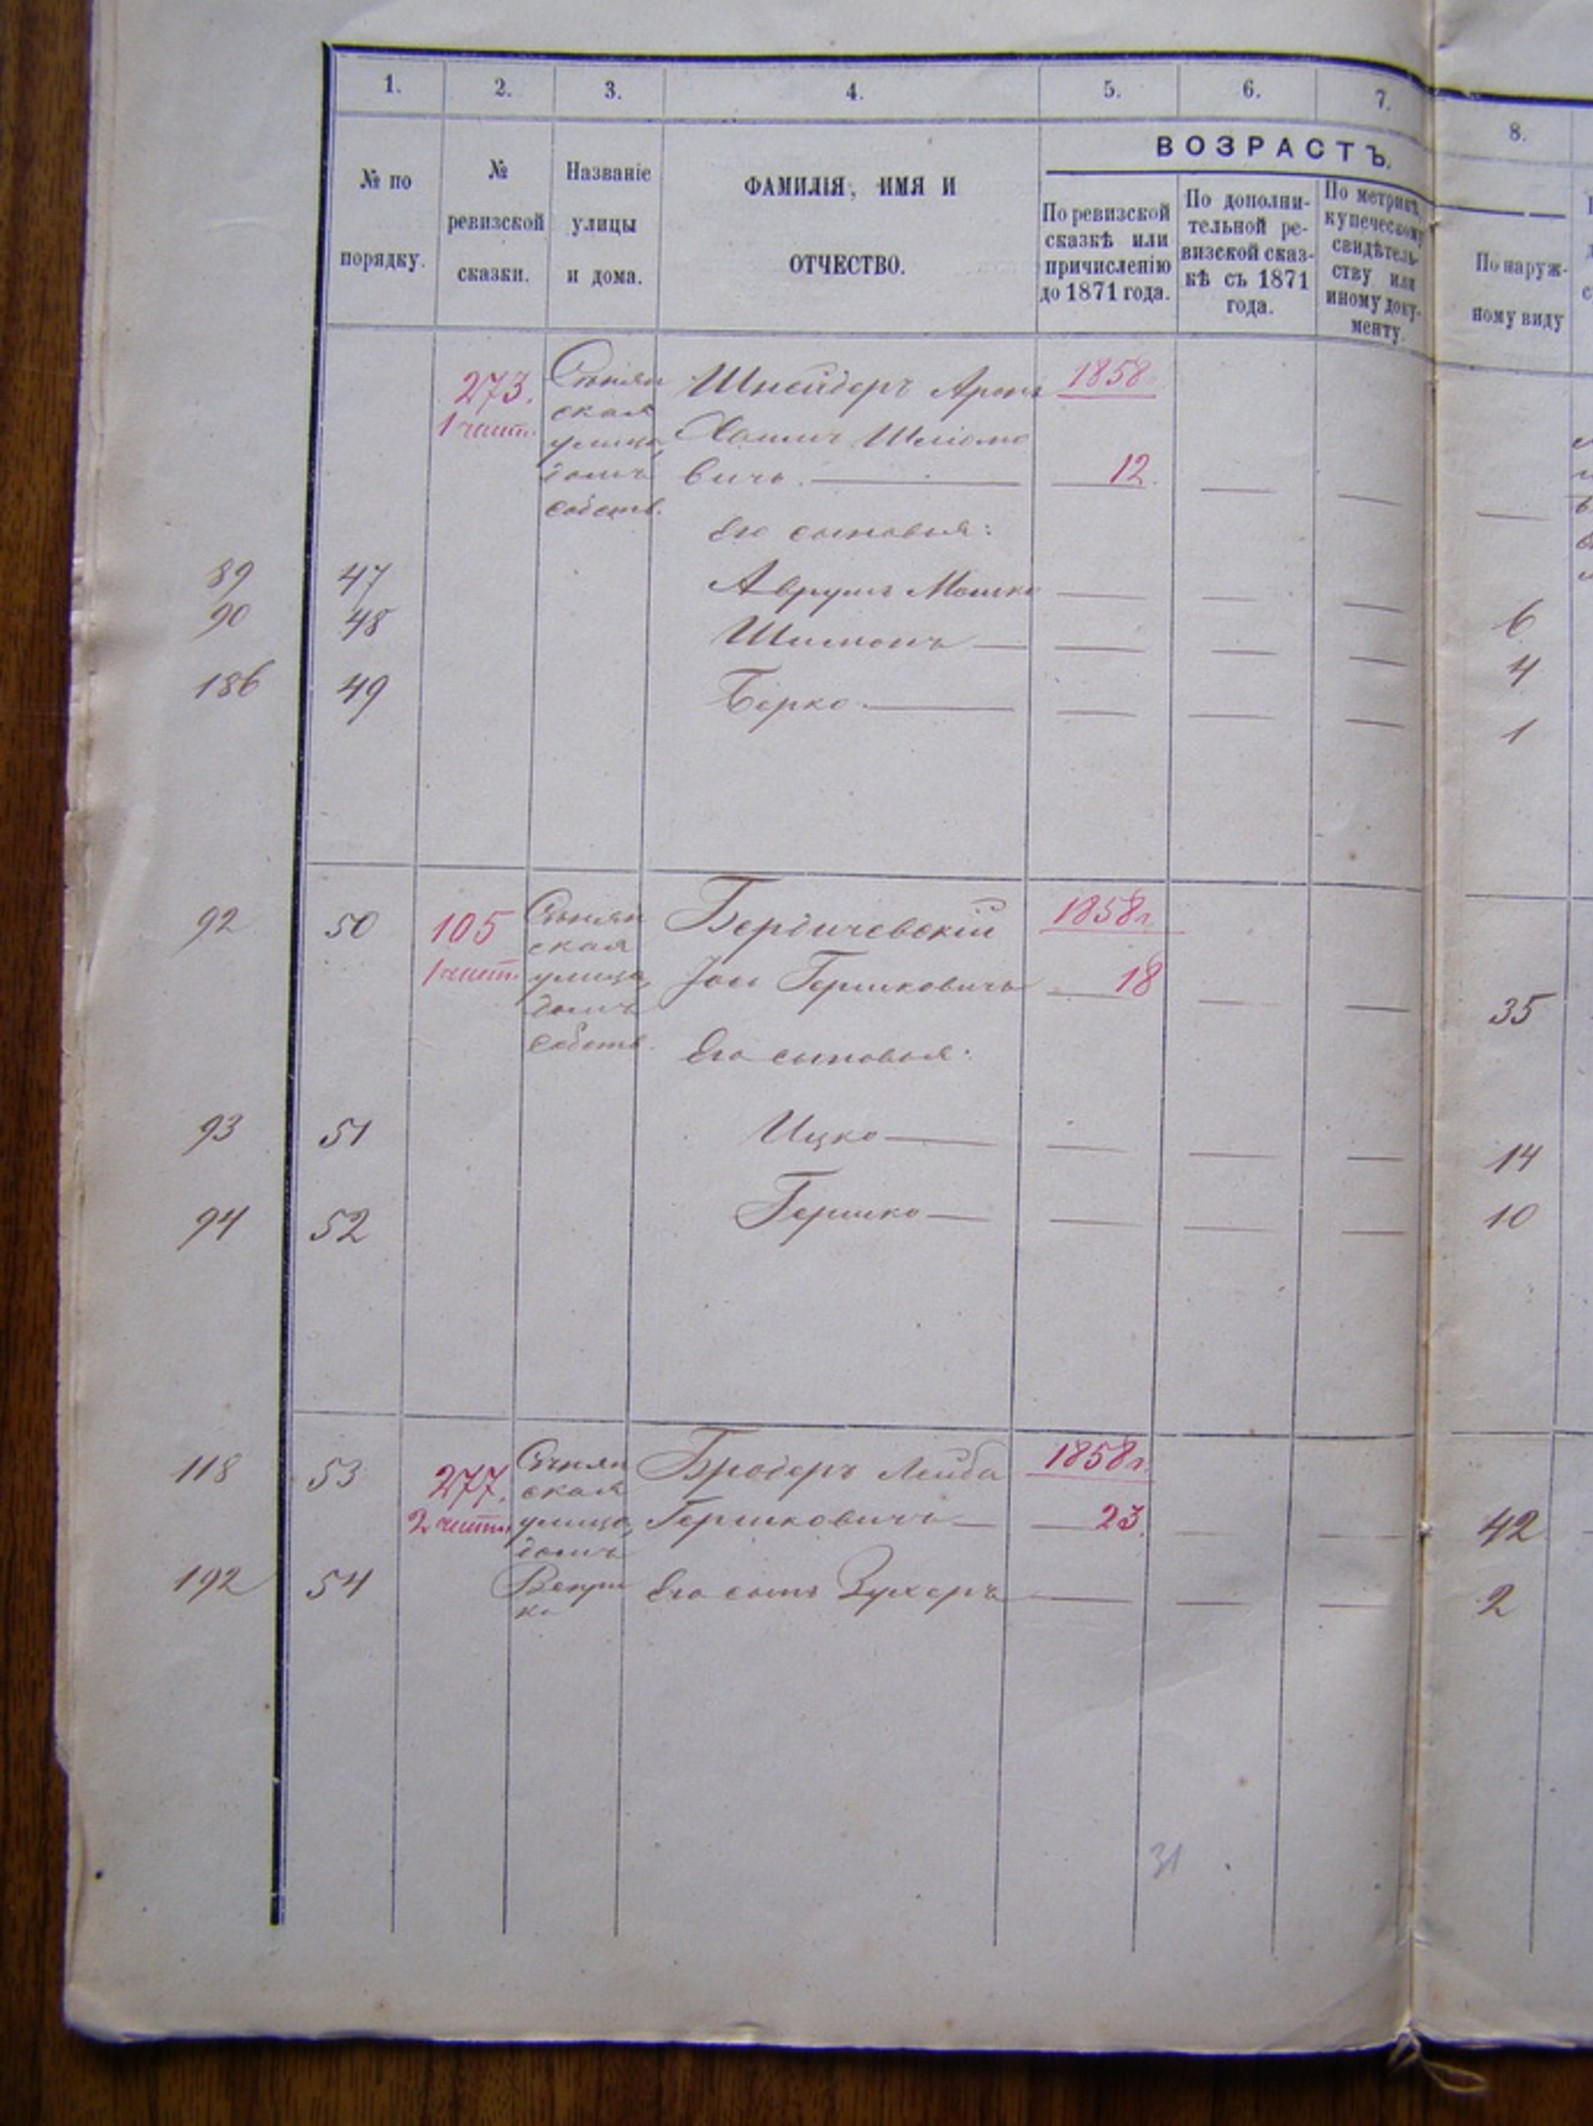 1. 2. 3. 4. 5. 6. 7. 8.
№ по порядку.
№ ревизской сказки.
Названіе улицы и дома.
ФАМИЛІЯ, ИМЯ И ОТЧЕСТВО.
ВОЗРАСТЪ.
По ревизской сказкѣ или причисленію до 1871 года.
По дополнительной ревизской сказкѣ съ 1871 года.
По метрикѣ, купеческому свидѣтельству или иному документу.
По наружному виду
273. Шнейдеръ Аронъ 1858
1 част. ская
улица, Шліомо
домъ вичъ. — 12. — — —
собств.
Его сыновья:
89 47 Аврумъ Мошко — — — 6
90 48 Шимонъ — — — — 4
186 49 Берко — — — — 1
92 50 105 Бердичевскій 1858 г.
ская
1 част. улица, Іос Гершковичъ 18 — — 35
домъ
собств. Его сыновья:
93 51 Ицко — — — — 14
94 52 Гершко — — — — 10
118 53 277. Бродеръ Лейба 1858 г.
ская
2 част. улица, Гершковичъ — 23. — — 42
домъ
192 54 Его сынъ Зухеръ — — — 2
31